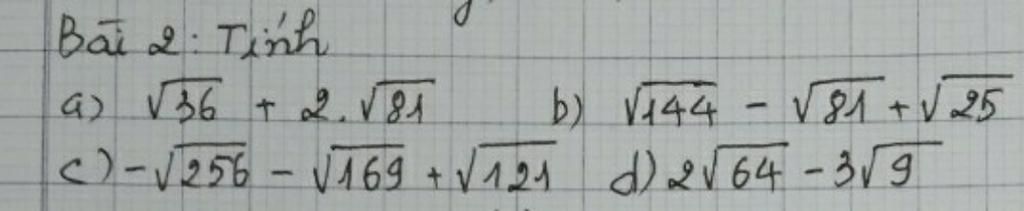 Bài 2: Tính
a) √36 + 2.√81 b) √144 - √81 + √25
c) -√256 - √169 + √121 d) 2√64 - 3√9